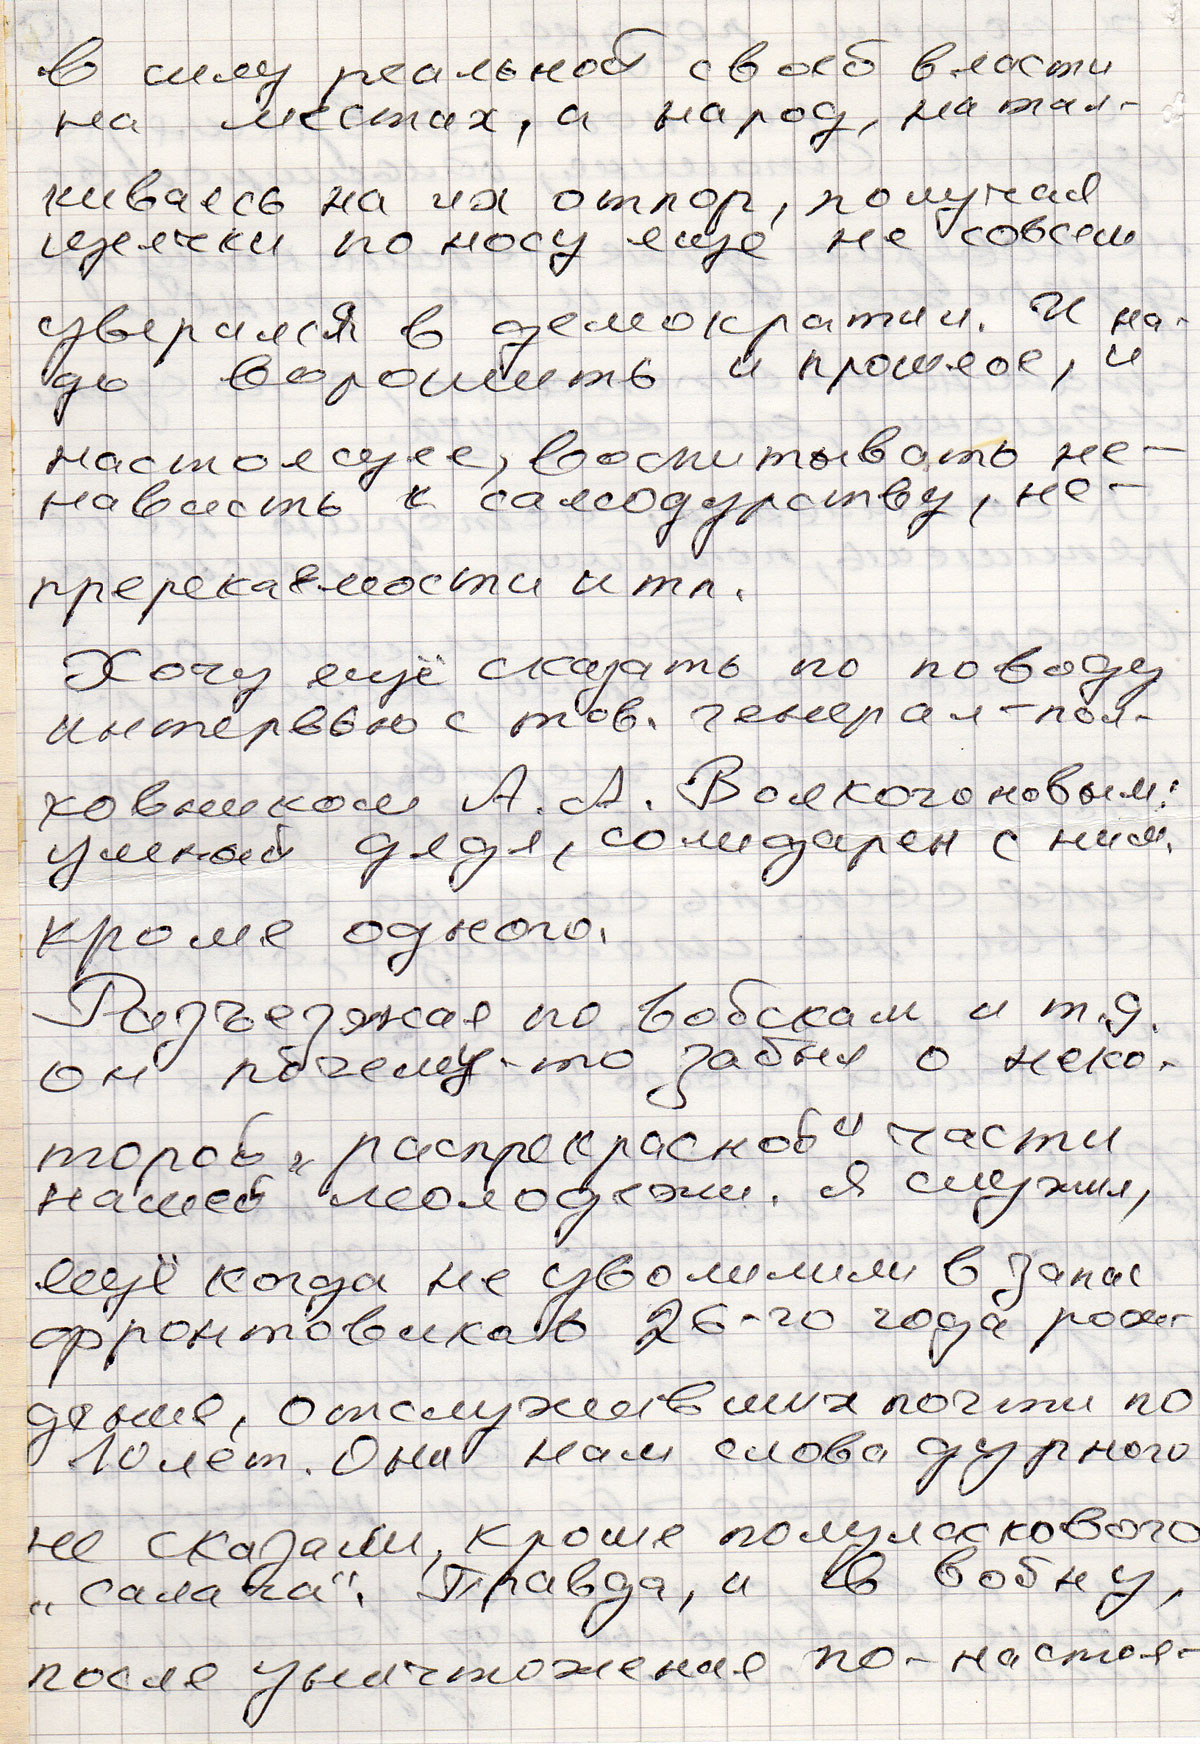 в силу реальной своей власти
на местах, а народ, натал-
киваясь на их отпор, получая
щелчки по носу ещё не совсем
уверился в демократии. И на-
до ворошить и прошлое, и
настоящее, воспитывать не-
нависть к самодурству, не-
пререкаемости и тп.
Хочу ещё сказать по поводу
интервью с тов. генерал-пол-
ковником А. А. Волкогоновым:
умный дядя, солидарен с ним,
кроме одного.
Разъезжая по войскам и т.д.
он почему-то забыл о неко-
торой „распрекрасной“ части
нашей молодежи. Я служил,
ещё когда не уволили в запас
фронтовиков 26-го года рож-
дения, отслуживших почти по
10 лет. Они нам слова дурного
не сказали, кроме полуласкового
„салага“. Правда, и в войну,
после уничтожения по-настоя-